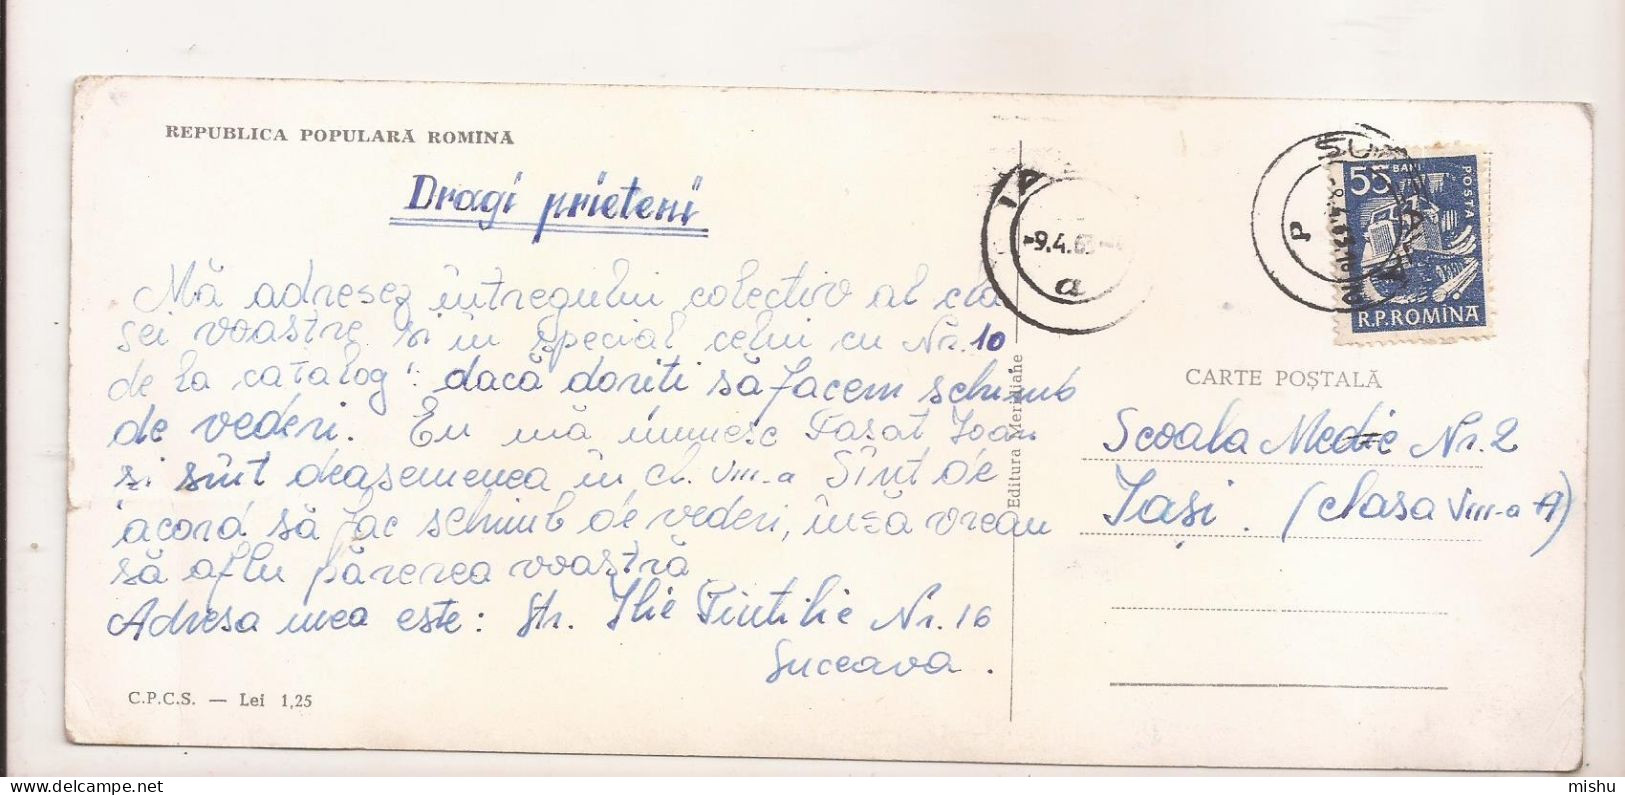 REPUBLICA POPULARĂ ROMINĂ
Dragi prieteni
Mă adresez întregului colectiv al cla
sei voastre și în special celui cu Nr. 10
de la catalog: dacă doriti să facem schimb
de vederi. Eu mă numesc Fasat Ioan
și sînt deasemenea în cl. VIII-a Sînt de
acord să fac schimb de vederi, însă vreau
să aflu părerea voastră
Adresa mea este: Str. Ilie Pintilie Nr. 16
Suceava.
C.P.C.S. — Lei 1,25
Editura Meridiane
-9.4.6
a
SU
P
55 BANI
POSTA
R.P.ROMÎNA
CARTE POȘTALĂ
Scoala Medie Nr. 2
Iași. (clasa VIII-a A)
mishu